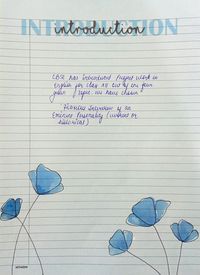 INTRODUCTION
introduction
CBSE has introduced Project work in
English for class XII out of the four
given topic. We have chosen
Fictitious Interview of an
Eminent Personality (current or
historical)